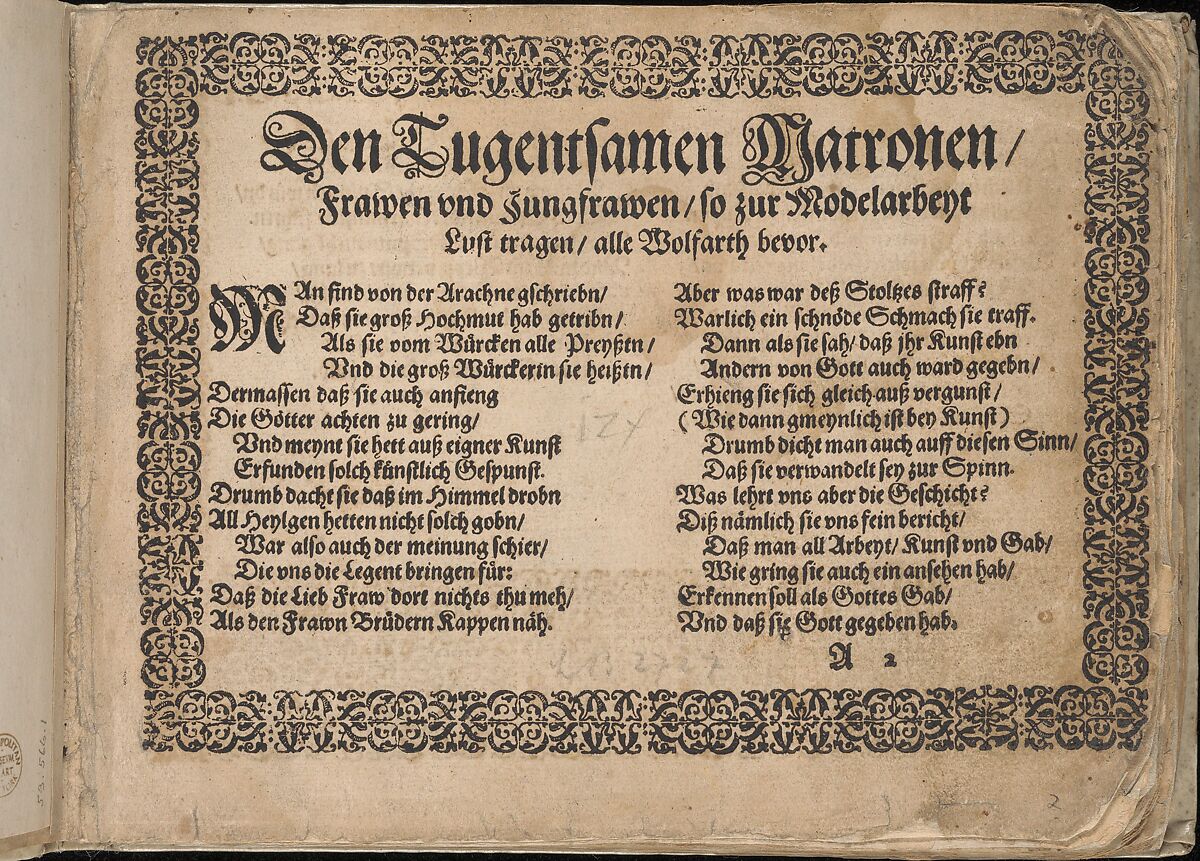 Den Tugentsamen Matronen /
Frawen vnd Jungfrawen / so zur Modelarbeyt
Lust tragen / alle Wolfarth bevor.
MAn find von der Arachne gschriebn /
Daß sie groß Hochmut hab getribn /
Als sie vom Würcken alle Preyßtn /
Vnd die groß Würckerin sie heißtn /
Dermassen daß sie auch anfieng
Die Götter achten zu gering /
Vnd meynt sie hett auß eigner Kunst
Erfunden solch künstlich Gespunst.
Drumb dacht sie daß im Himmel drobn
All Heylgen hetten nicht solch gobn /
War also auch der meinung schier /
Die vns die Legent bringen für:
Daß die Lieb Fraw dort nichts thu meh /
Als den Frawn Brüdern Kappen näh.
Aber was war deß Stoltzes straff?
Warlich ein schnöde Schmach sie traff.
Dann als sie sah / daß jhr Kunst ebn
Andern von Gott auch ward gegebn /
Erhieng sie sich gleich auß vergunst /
(Wie dann gmeynlich ist bey Kunst)
Drumb dicht man auch auff diesen Sinn /
Daß sie verwandelt sey zur Spinn.
Was lehrt vns aber die Geschicht?
Diß nämlich sie vns fein bericht /
Daß man all Arbeyt / Kunst vnd Gab /
Wie gring sie auch ein ansehen hab /
Erkennen soll als Gottes Gab /
Vnd daß sie Gott gegeben hab.
A 2
2